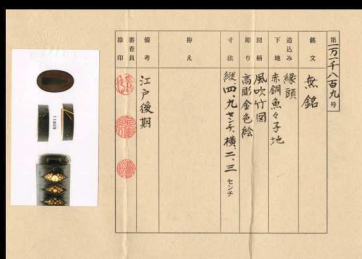 第一万一千八百九号
銘文
無銘
造込み
縁頭
下地
赤銅魚々子地
図柄
風吹竹図
彫り
高彫金色絵
寸法
縦四、九センチ、横、二、三センチ
抑え
備考
江戸後期
審査員
証印